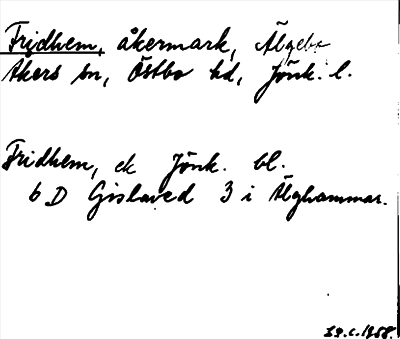 Fridhem, åkermark, Älgebo
Åkers sn, Östbo hd, Jönk. l.
Fridhem, ek Jönk. bl.
6 D Gislaved 3 i Älghammar.